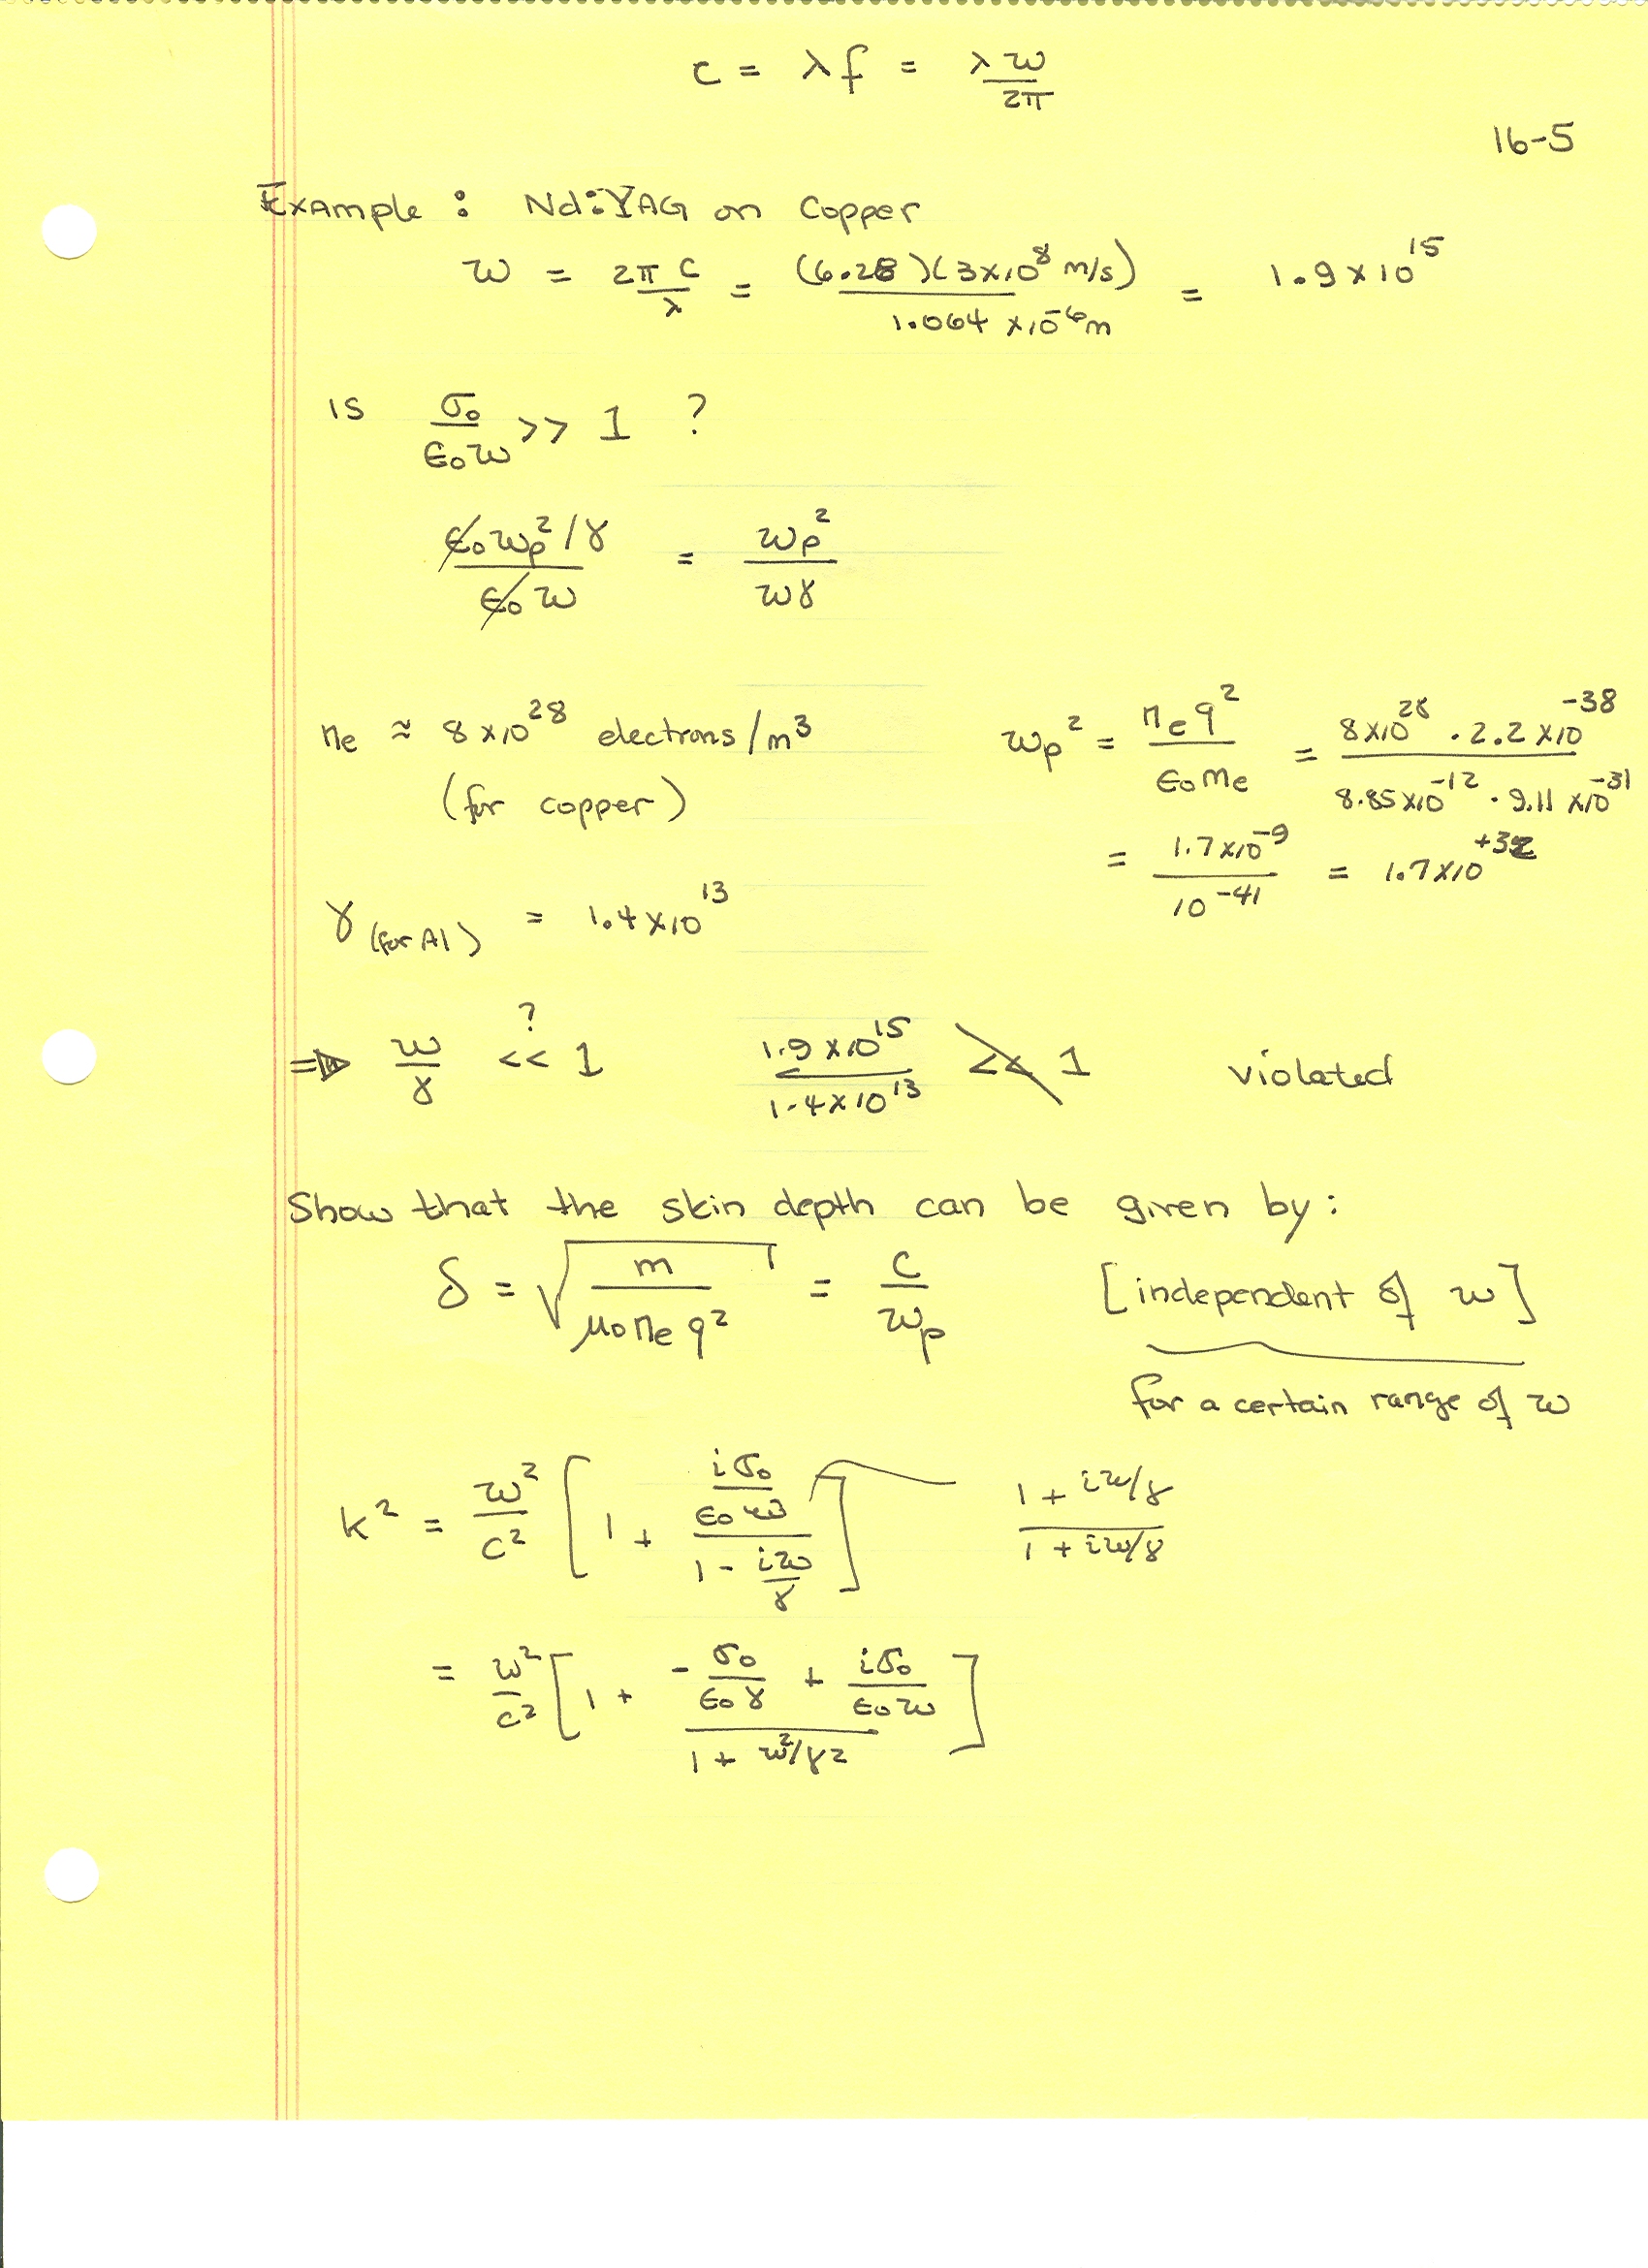 c = λf = λω/2π
16-5
Example : Nd:YAG on Copper
ω = 2πc/λ = (6.28)(3×10⁸ m/s)/1.064 ×10⁻⁶m = 1.9×10¹⁵
is σ₀/ε₀ω >> 1 ?
ε₀ωp²/γ / ε₀ω = ωp²/ωγ
ne ≈ 8×10²⁸ electrons/m³
(for copper)
ωp² = ne q²/ε₀me = 8×10²⁸ · 2.2×10⁻³⁸ / 8.85×10⁻¹² · 9.11×10⁻³¹
= 1.7×10⁻⁹/10⁻⁴¹ = 1.7×10⁺³²
γ (for Al) = 1.4×10¹³
⇒ ω/γ <<? 1 1.9×10¹⁵/1.4×10¹³ << 1 violated
Show that the skin depth can be given by:
δ = √(m/μ₀ne q²) = c/ωp [independent of ω]
for a certain range of ω
k² = ω²/c² [1 + (iσ₀/ε₀ω)/(1 - iω/γ)] (1 + iω/γ)/(1 + iω/γ)
= ω²/c² [1 + (-σ₀/ε₀γ + iσ₀/ε₀ω)/(1 + ω²/γ²)]